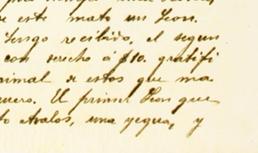 de este mato un Leon.
Tengo recibido, el segun
con derecho á $10. gratifi
animal de estos que ma
nero. El primer Leon que
to Avalos, una yegua, y